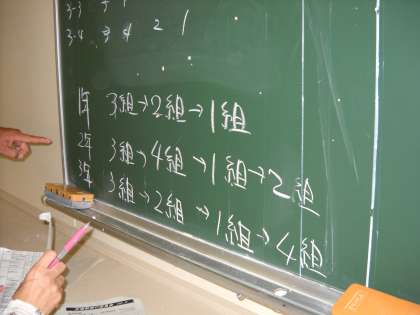 3-3
3-4 3 4 2 1
1年 3組→2組→1組
2年 3組→4組→1組→2組
3年 3組→2組→1組→4組